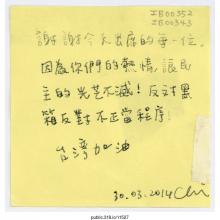 IB00352
IB00343
謝謝今天出席的每一位。
因為你們的熱情,讓民
主的光芒不滅!反對黑
箱反對不正當程序!
台灣加油
30.03.2014
public.318.io/1587